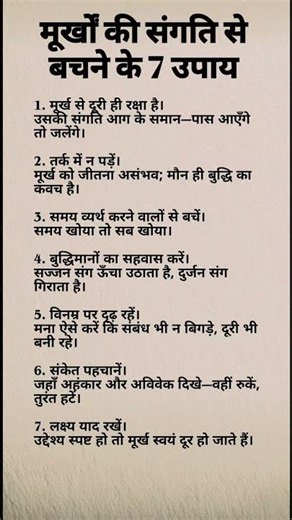 मूर्खों की संगति से
बचने के 7 उपाय
1. मूर्ख से दूरी ही रक्षा है।
उसकी संगति आग के समान—पास आएँगे
तो जलेंगे।
2. तर्क में न पड़ें।
मूर्ख को जीतना असंभव; मौन ही बुद्धि का
कवच है।
3. समय व्यर्थ करने वालों से बचें।
समय खोया तो सब खोया।
4. बुद्धिमानों का सहवास करें।
सज्जन संग ऊँचा उठाता है, दुर्जन संग
गिराता है।
5. विनम्र पर दृढ़ रहें।
मना ऐसे करें कि संबंध भी न बिगड़े, दूरी भी
बनी रहे।
6. संकेत पहचानें।
जहाँ अहंकार और अविवेक दिखे—वहीं रुकें,
तुरंत हटें।
7. लक्ष्य याद रखें।
उद्देश्य स्पष्ट हो तो मूर्ख स्वयं दूर हो जाते हैं।